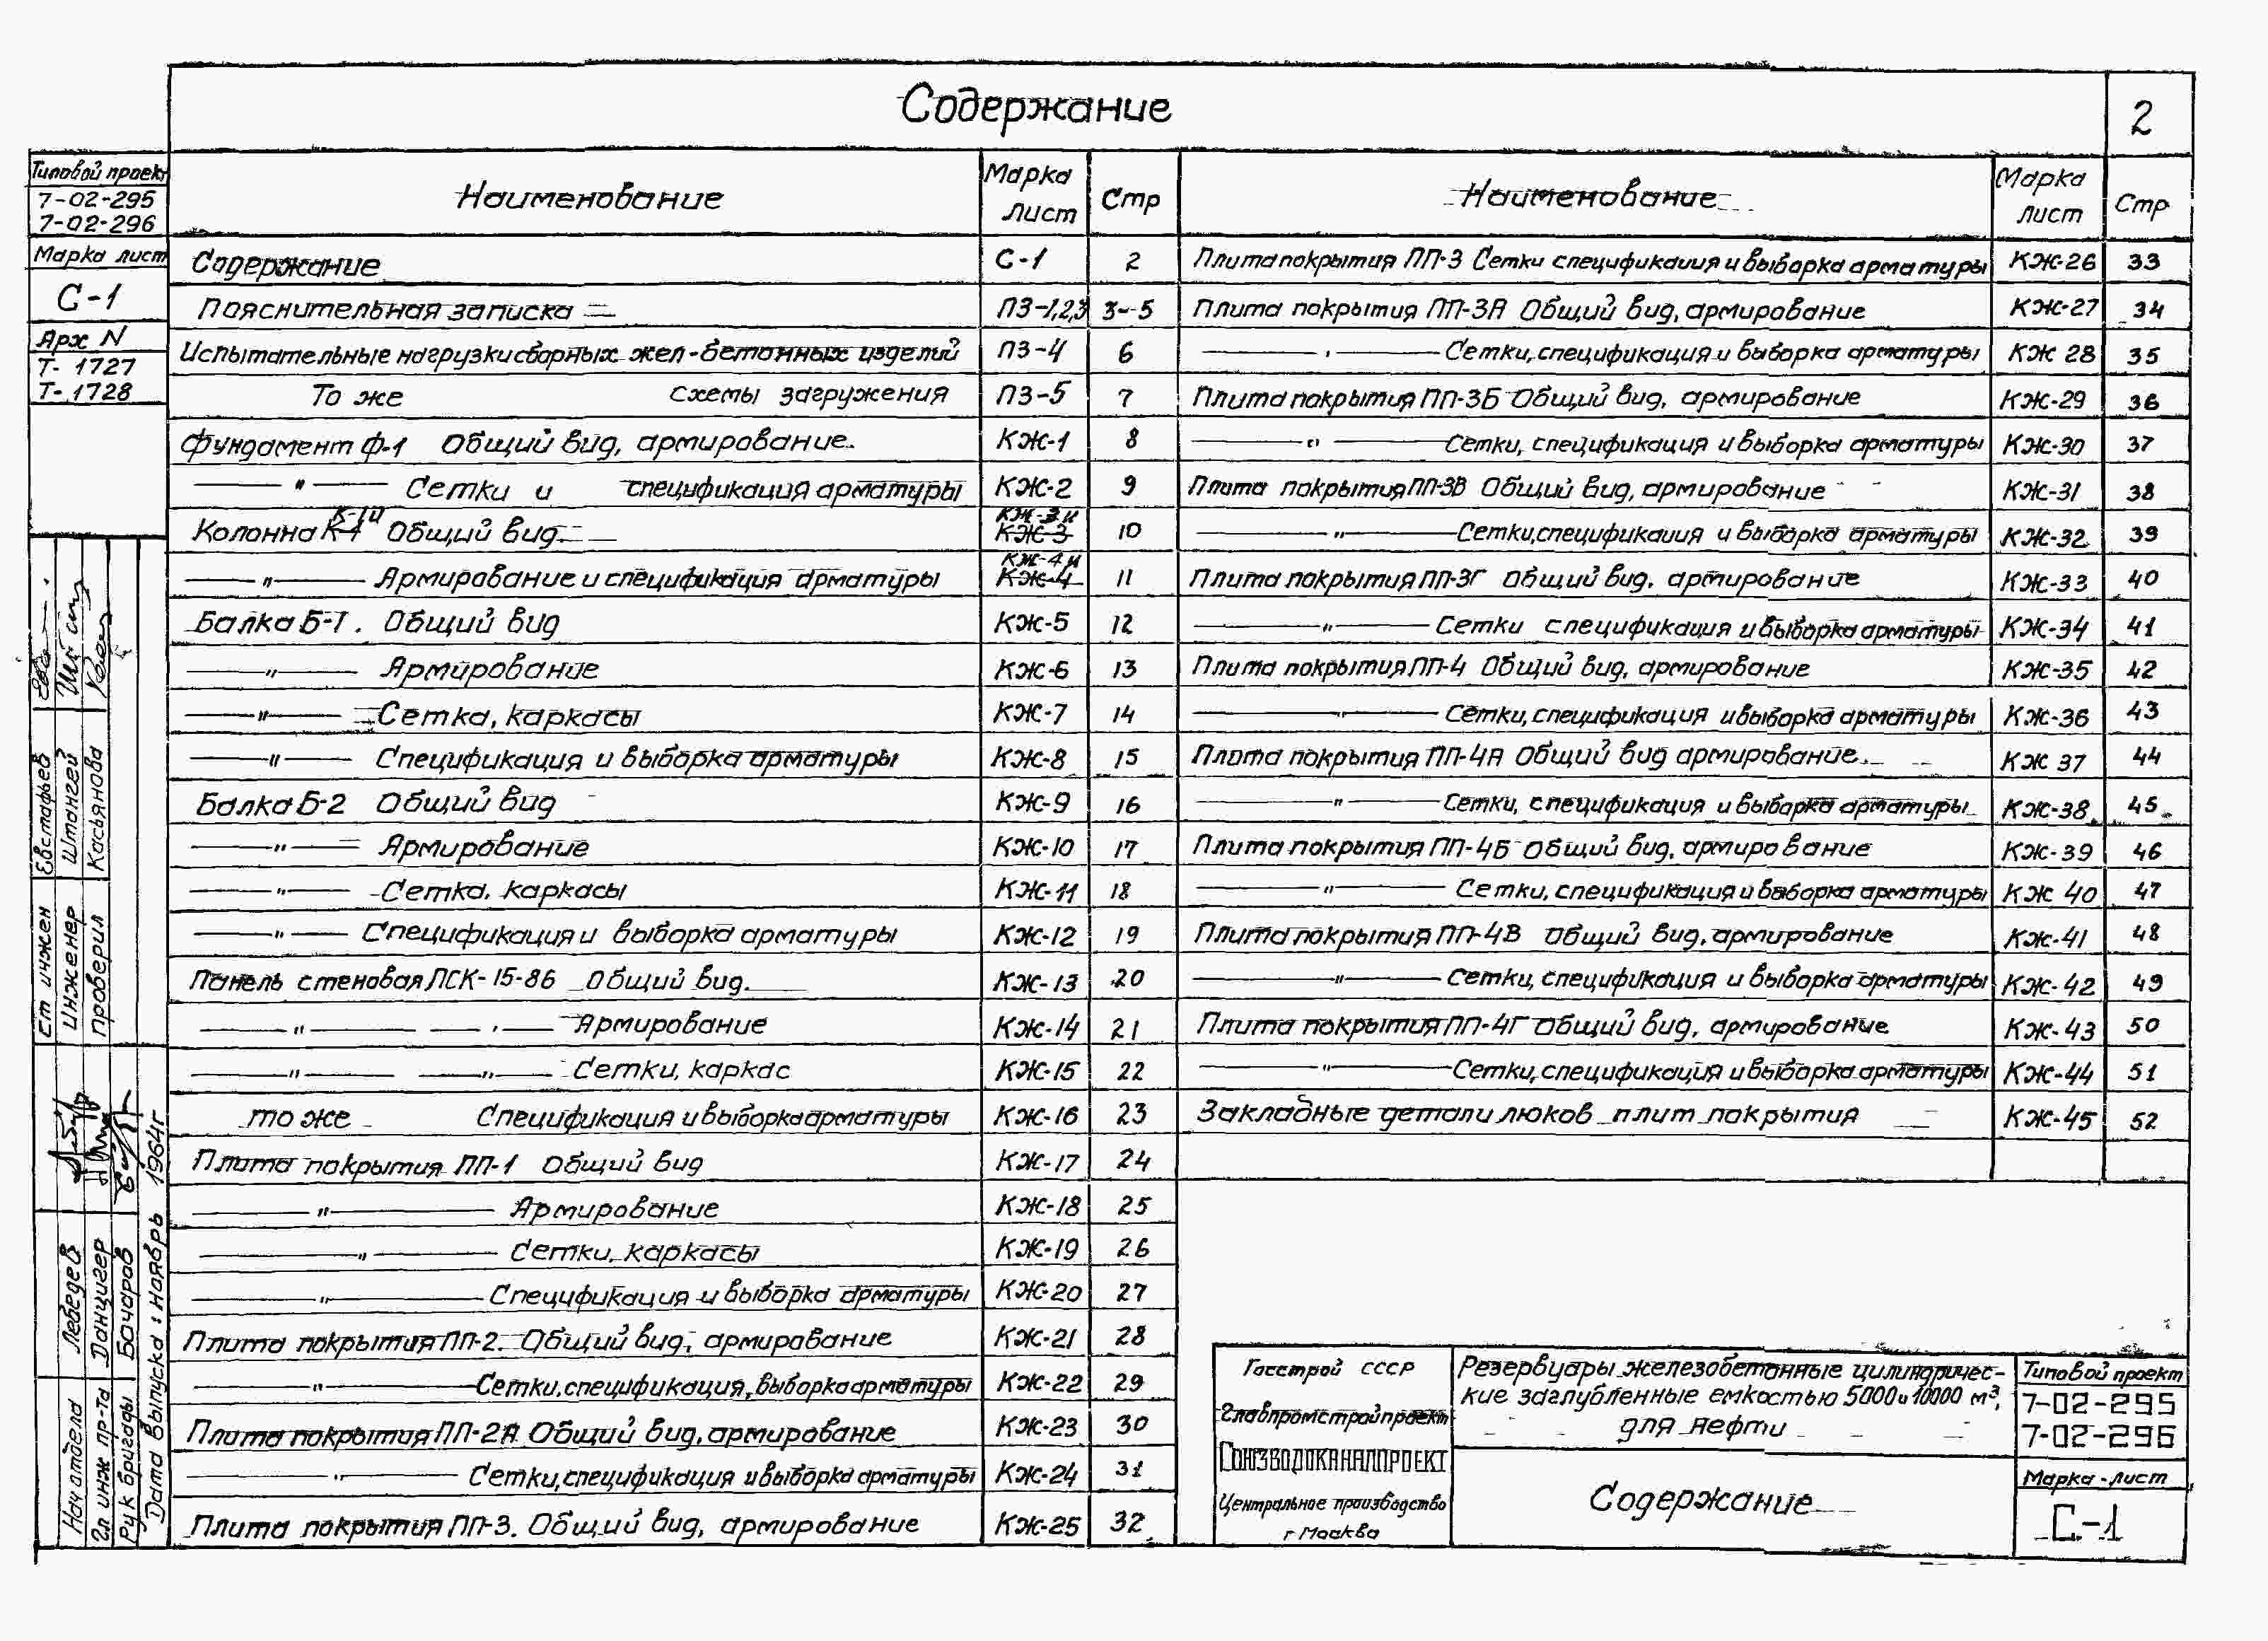 Содержание
2
Типовой проект
7-02-295
7-02-296
Марка лист
С-1
Арх N
Т- 1727
Т- 1728
Наименование Марка лист Стр
Содержание С-1 2
Пояснительная записка ПЗ-1,2,3 3-5
Испытательные нагрузки сборных жел-бетонных изделий ПЗ-4 6
То же схемы загружения ПЗ-5 7
Фундамент Ф-1 Общий вид, армирование. КЖ-1 8
—— " —— Сетки и спецификация арматуры КЖ-2 9
К-1и КЖ-3и
Колонна К-1 Общий вид. КЖ-3 10
КЖ-4и
—— " —— Армирование и спецификация арматуры КЖ-4 11
Балка Б-1. Общий вид КЖ-5 12
—— " —— Армирование КЖ-6 13
—— " —— Сетка, каркасы КЖ-7 14
—— " —— Спецификация и выборка арматуры КЖ-8 15
Балка Б-2 Общий вид КЖ-9 16
—— " —— Армирование КЖ-10 17
—— " —— Сетка, каркасы КЖ-11 18
—— " —— Спецификация и выборка арматуры КЖ-12 19
Панель стеновая ПСК-15-86 Общий вид. КЖ-13 20
—— " —— — " — Армирование КЖ-14 21
—— " —— — " — Сетки, каркас КЖ-15 22
то же Спецификация и выборка арматуры КЖ-16 23
Плита покрытия ПП-1 Общий вид КЖ-17 24
—— " —— Армирование КЖ-18 25
—— " —— Сетки, каркасы КЖ-19 26
—— " —— Спецификация и выборка арматуры КЖ-20 27
Плита покрытия ПП-2. Общий вид, армирование КЖ-21 28
—— " —— Сетки, спецификация, выборка арматуры КЖ-22 29
Плита покрытия ПП-2А Общий вид, армирование КЖ-23 30
—— " —— Сетки, спецификация и выборка арматуры КЖ-24 31
Плита покрытия ПП-3. Общий вид, армирование КЖ-25 32
Наименование Марка лист Стр
Плита покрытия ПП-3 Сетки спецификация и выборка арматуры КЖ-26 33
Плита покрытия ПП-3А Общий вид, армирование КЖ-27 34
—— " —— Сетки, спецификация и выборка арматуры КЖ 28 35
Плита покрытия ПП-3Б Общий вид, армирование КЖ-29 36
—— " —— Сетки, спецификация и выборка арматуры КЖ-30 37
Плита покрытия ПП-3В Общий вид, армирование КЖ-31 38
—— " —— Сетки, спецификация и выборка арматуры КЖ-32 39
Плита покрытия ПП-3Г Общий вид. армирование КЖ-33 40
—— " —— Сетки спецификация и выборка арматуры КЖ-34 41
Плита покрытия ПП-4 Общий вид, армирование КЖ-35 42
—— " —— Сетки, спецификация и выборка арматуры КЖ-36 43
Плита покрытия ПП-4А Общий вид армирование. КЖ 37 44
—— " —— Сетки, спецификация и выборка арматуры КЖ-38 45
Плита покрытия ПП-4Б Общий вид, армирование КЖ-39 46
—— " —— Сетки, спецификация и выборка арматуры КЖ 40 47
Плита покрытия ПП-4В Общий вид, армирование КЖ-41 48
—— " —— Сетки, спецификация и выборка арматуры КЖ-42 49
Плита покрытия ПП-4Г Общий вид, армирование КЖ-43 50
—— " —— Сетки, спецификация и выборка арматуры КЖ-44 51
Закладные детали люков плит покрытия КЖ-45 52
Ст инжен Евстафьев
Инженер Штангей
Проверил Касьянова
Нач отдела Лебедев
Гл инж пр-та Данцигер
Рук бригады Бочаров
Дата выпуска: ноябрь 1964г
Госстрой СССР
Главпромстройпроект
СОЮЗВОДОКАНАЛПРОЕКТ
Центральное производство
г Москва
Резервуары железобетонные цилиндричес-
кие заглубленные емкостью 5000 и 10000 м³,
для нефти
Содержание
Типовой проект
7-02-295
7-02-296
Марка-лист
С-1